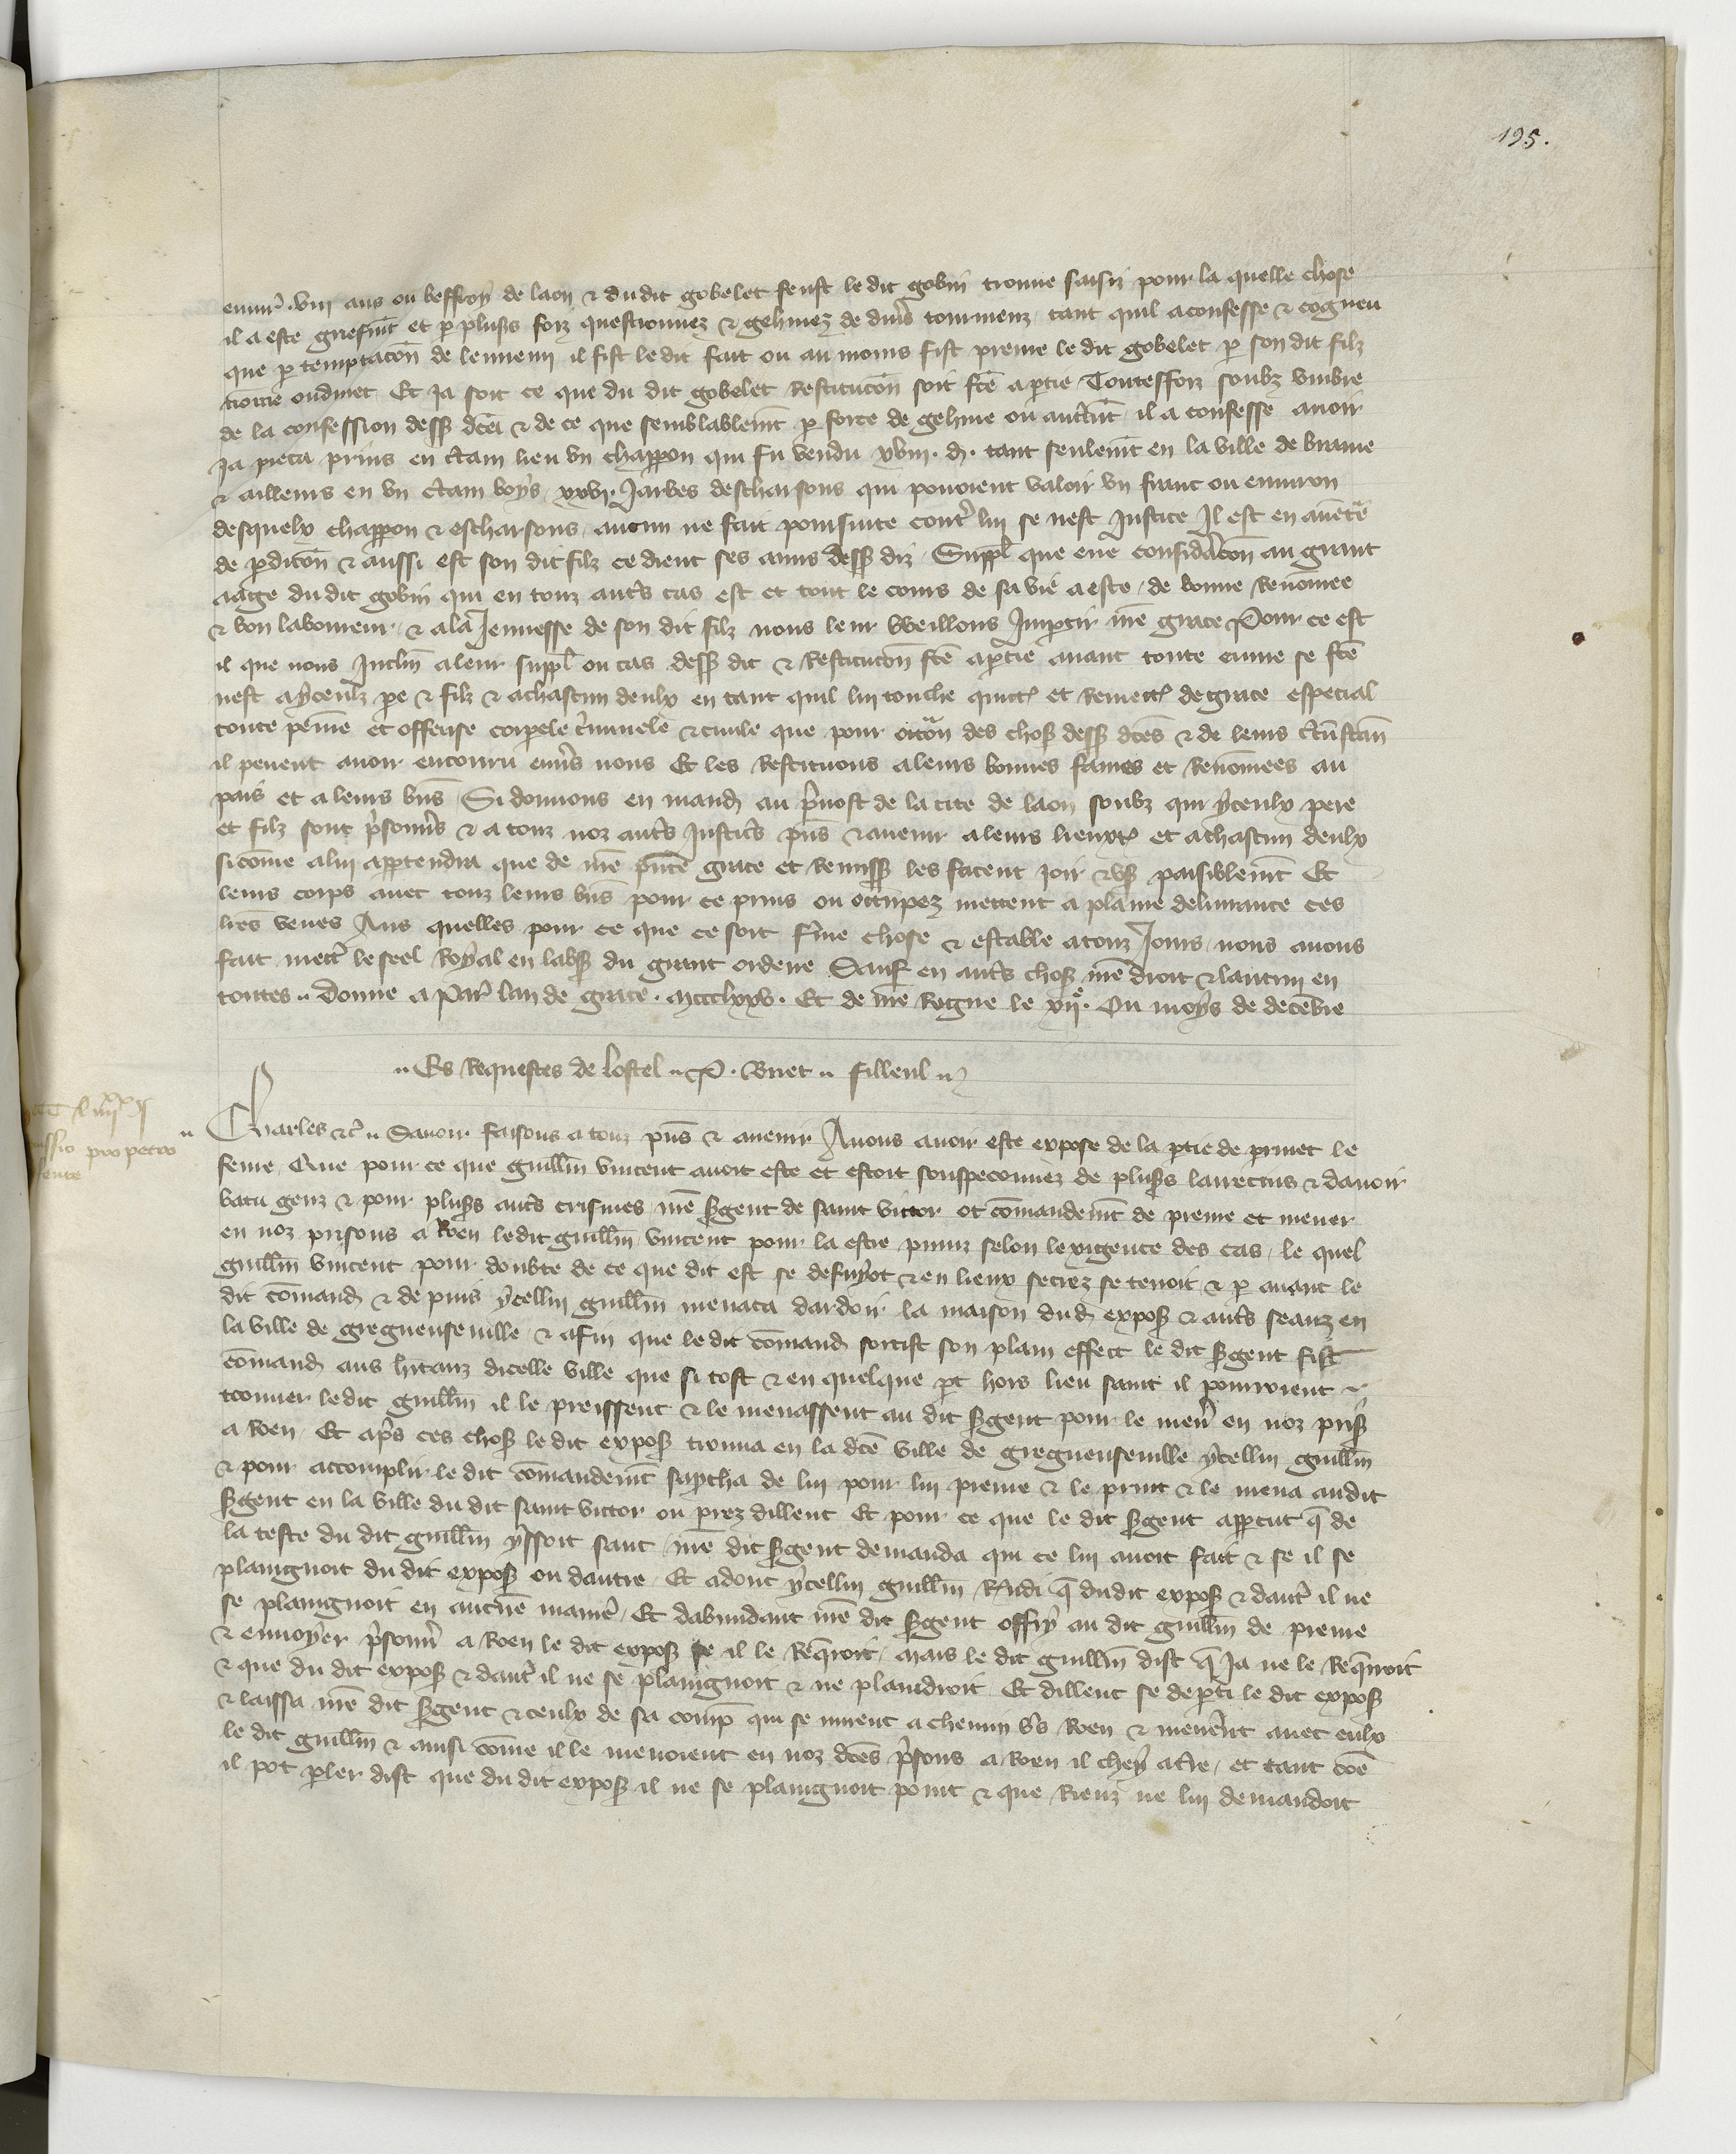 195.
envir̃ .viii ans ou beffroy de laon & du dit gobelet feust le dit gobin trouve saisi pour la quelle chose
il a este griefm̃t et p plus̃s foiz questionnez & gehinez de div̾s tourmenz tant quil a confesse & cogneu
que p temptac̃on de lennemi il fist le dit fait ou au moins fist prenre le dit gobelet p son dit filz
Et ja soit ce que du dit gobelet Restituc̃on soit fc̃e a ptie Toutesfoiz soubz umbre
de la confession dess̃ dc̃e & de ce que semblablem̃t p force de gehine ou autrem̃t il a confesse avoir
ja pieca prins en c̃tain lieu un chappon qui fu vendu xviii. d. tant seulem̃t en la ville de braine
& ailleurs en un c̃tain boys xxvi. Jarbes descharsons qui povoient valoir un franc ou environ
desquelx chappon & escharsons aucun ne fait poursuite cont̾ lui se nest Justice Il est en avẽt̾e
de pdic̃on & aussi est son dit filz ce dient ses amis dess̃ diz. Suppl̃ que eue considac̃on au grant
aage du dit gobin qui en touz aut̾s cas est et tout le cours de sa vie a este de bonne Renom̃ee
& bon laboureur & a la Jeunesse de son dit filz nous leur Weillons Impartir nr̃e grace Pour ce est
il que nous Inclin̄ a leur suppl̃ ou cas dess̃ dit & Restituc̃on fc̃e a ptie avant toute euvre se fc̃e
nest a yceulx pe & filz & a chascun deulx en tant quil lui touche quitt̃ et Remett̃ de grace especial
toute peine et offense corpele c̾iminele & civile que pour occ̃on des chos̃ dess̃ dc̃es & de leurs c̾cũstan̄
il pevent avoir encouru env̾s nous Et les Restituons a leurs bonnes fames et Renom̃ees au
pais et a leurs biẽs Si donnons en mand̃ au p̾vost de la cite de laon soubz qui yceulx pere
et filz sont p̾sonn̾s & a touz noz aut̾s Justic̾s p̃ns & avenir a leurs lieuxt̃ et a chascun deulx
sicom̃e a lui appartendra que de nr̃e p̃nte grace et Remiss̃ les facent joir & us̃ paisiblem̃t Et
leurs corps avec touz leurs biẽs pour ce prins ou occupez mettent a plaine delivrance ces
lr̃es veues Aus quelles pour ce que ce soit f̾me chose & estable a touz Jours nous avons
fait mett̾ le seel Royal en labs̃ du grant ordene Sauf en aut̾s chos̃ nr̃e droit & lautruy en
toutes .. Donne a Par̃ lan de grace .mccclxxv. Et de nr̃e Regne le xii.e Ou moys de decẽbre
.. Es Requestes de lostel .. P. Buet .. Filleul ..
pro petro
Charles &c̾ .. Savoir faisons a touz p̃ns & avenir A nous avoir este expose de la ptie de prinet le
Que pour ce que guill̃m vincent avoit este et estoit souspeconnez de plus̃s larrecins & davoir
batu genz & pour plus̃s aut̾s crismes nr̃e s̾gent de saint victor ot com̃andem̃t de prenre et mener
en noz prisons a Roen le dit guill̃m vincent pour la estre puniz selon lexigence des cas. le quel
guill̃m vincent pour doubte de ce que dit est se defuyot & en lieux secrez se tenoit & p avant le
dit com̃and̃ & depuis ycellui guill̃m menaca dardoir la maison dud̃ expos̃ & aut̾s seanz en
la ville de greguenseville & afin que le dit com̃and̃ sortist son plain effect le dit s̾gent fist
com̃and̃ aus hĩtanz dicelle ville que si tost & en quelque pt hors lieu saint il pourroient
trouver le dit guill̃m il le preissent & le menassent au dit s̾gent pour le men̾ en noz pris̃
a Roen. Et ap̾s ces chos̃ le dit expos̃ trouva en la dc̃e ville de greguenseville ycellui guill̃m
& pour accomplir le dit com̃andem̃t sapcha de lui pour lui prenre & le print & le mena audit
s̾gent en la ville du dit saint victor ou prez dillenc Et pour ce que le dit s̾gent appercut q̃ de
la teste du dit guill̃m yssoit sanc nr̃e dit s̾gent demanda qui ce lui avoit fait & se il se
plaingnoit du dit expos̃ ou dautre. Et adonc ycellui guill̃m Rñdi q̃ dudit expos̃ & daut̾ il ne
se plaingnoit en aucũe manie̾. Et dabundant nr̃e dit s̾gent offry au dit guill̃m de prenre
& envoyer p̾sonn̾ a Roen le dit expos̃ se il le Req̃roit. Mais le dit guill̃m dist q̃ Ja ne le Req̃rroit
& que du dit expos̃ & daut̾ il ne se plaingnoit & ne plaindroit. Et dillenc se departi le dit expos̃
& laissa nr̃e dit s̾gent & ceulx de sa comp̃ qui se mirent a chemin v̾s Roen & mene̾nt avec eulx
le dit guill̃m & ainsi com̃e il le menoient en noz dc̃es p̾sons a Roen il chey a t̾re, et tant cõe
il pot pler dist que du dit expos̃ il ne se plaingnoit point & que Rienz ne lui demandoit